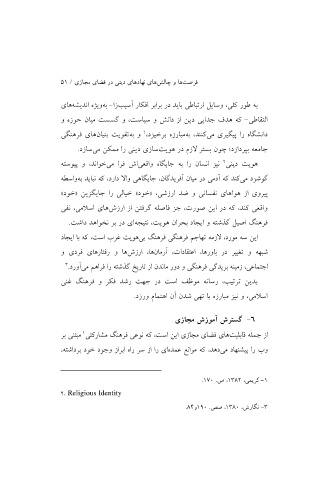 فرصت‌ها و چالش‌های نهادهای دینی در فضای مجازی / ۵۱
به طور کلی، وسایل ارتباطی باید در برابر افکار آسیب‌زا- به‌ویژه اندیشه‌های
التقاطی- که هدف جدایی دین از دانش و سیاست، و گسست میان حوزه و
دانشگاه را پیگیری می‌کنند، به‌مبارزه برخیزد،۱ و به‌تقویت بنیان‌های فرهنگی
جامعه بپردازد؛ چون بستر لازم در هویت‌سازی دینی را ممکن می‌سازد.
هویت دینی۲ نیز انسان را به جایگاه واقعی‌اش فرا می‌خواند، و پیوسته
گوشزد می‌کند که آدمی در میان آفریدگان، جایگاهی والا دارد، که نباید به‌واسطه
پیروی از هواهای نفسانی و ضد ارزشی، «خود» خیالی را جایگزین «خود»
واقعی کند، که در این صورت، جز فاصله گرفتن از ارزش‌های اسلامی، نفی
فرهنگ اصیل گذشته و ایجاد بحران هویت، نتیجه‌ای در بر نخواهد داشت.
این سه مورد، لازمه تهاجم فرهنگی فرهنگ بی‌هویت غرب است، که با ایجاد
شبهه و تغییر در باورها، اعتقادات، آرمان‌ها، ارزش‌ها و رفتارهای فردی و
اجتماعی، زمینه بریدگی فرهنگی و دور ماندن از تاریخ گذشته را فراهم می‌آورد.۳
بدین ترتیب، رسانه موظف است در جهت رشد فکر و فرهنگ غنی
اسلامی، و نیز مبارزه با تهی شدن آن اهتمام ورزد.
۶- گسترش آموزش مجازی
از جمله قابلیت‌های فضای مجازی این است، که نوعی فرهنگ مشارکتی۱ مبتنی بر
وب را پیشنهاد می‌دهد، که موانع عمده‌ای را از سر راه ابراز وجود خود برداشته،
۱- کریمی، ۱۳۸۲، ص. ۱۷۰.
۲. Religious Identity
۳- نگارش، ۱۳۸۰، صص. ۱۹۰و۸۲.